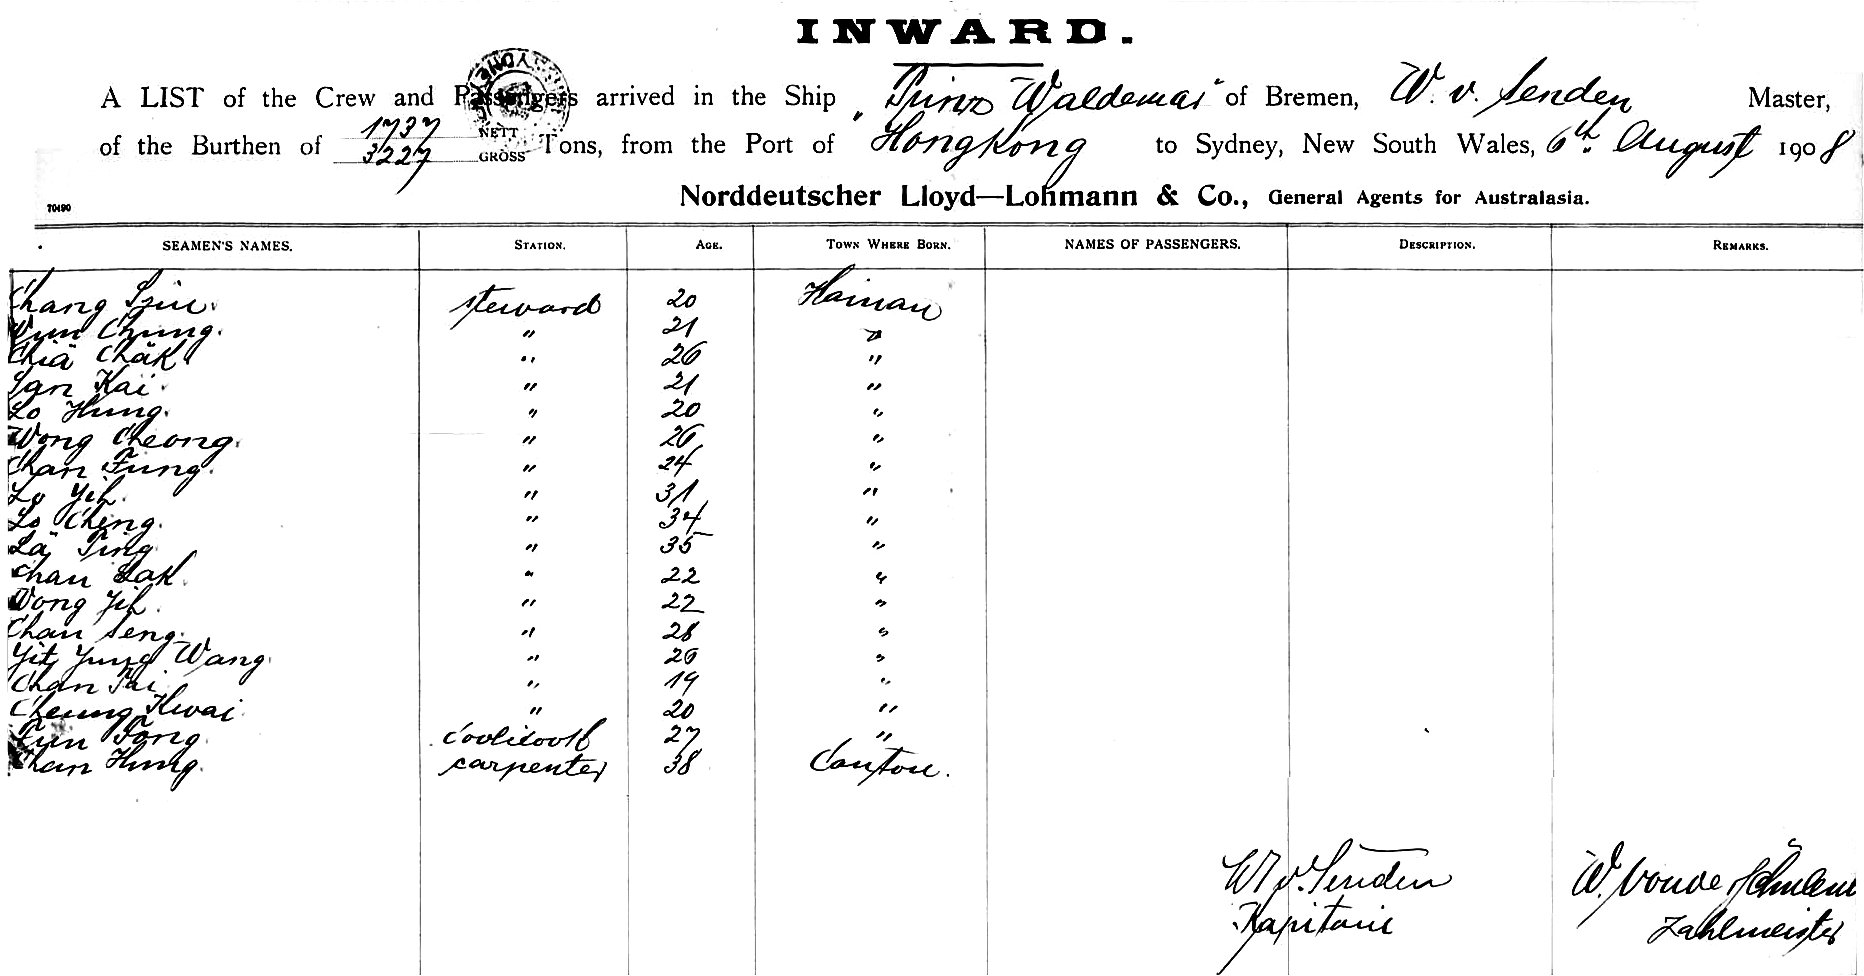 INWARD.
A LIST of the Crew and Passengers arrived in the Ship „Prinz Waldemar" of Bremen, W. v. Senden Master,
of the Burthen of 1737 NETT 3227 GROSS Tons, from the Port of Hongkong to Sydney, New South Wales, 6th August 1908
Norddeutscher Lloyd—Lohmann & Co., General Agents for Australasia.
70490
SEAMEN'S NAMES. STATION. AGE. TOWN WHERE BORN. NAMES OF PASSENGERS. DESCRIPTION. REMARKS.
Chang steward 20 Hainan
Chung. " 21 "
Chiä Chäk " 26 "
San Kai " 21 "
Lo Hung. " 20 "
Wong Cheong. " 26 "
Chan Fung. " 24 "
Lo Yih. " 31 "
Lo Ching. " 34 "
Lä Ting " 35 "
Chan " 22 "
Wong Yih. " 22 "
Chan Seng. " 28 "
Yung Wang. " 26 "
Chan Tai " 19 "
Cheung Kwai " 20 "
Fun Tong. 27 "
Chan Hung. carpenter 38 Canton.
W v. Senden
Kapitain
W.
Zahlmeister